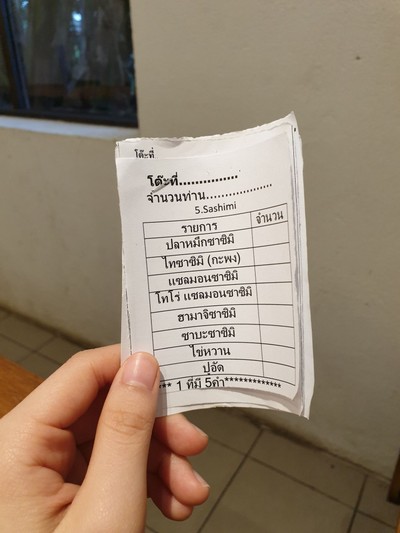 โต๊ะที่
โต๊ะที่...............
จำนวนท่าน...................
5.Sashimi
รายการ จำนวน
ปลาหมึกซาซิมิ
ไทซาซิมิ (กะพง)
แซลมอนซาซิมิ
โทโร่ แซลมอนซาซิมิ
ฮามาจิซาซิมิ
ซาบะซาซิมิ
ไข่หวาน
ปูอัด
*** 1 ที่มี 5คำ*************